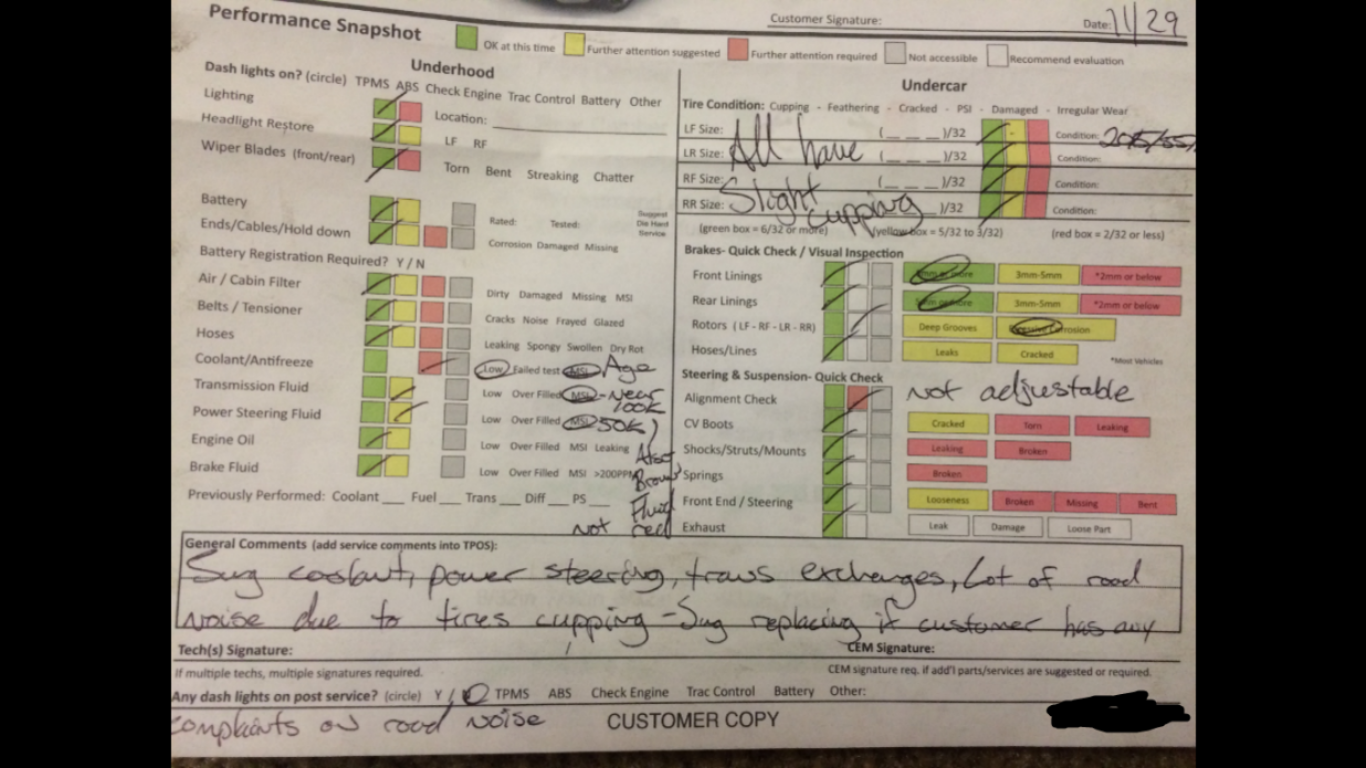 Performance Snapshot
Customer Signature:
Date: 11/29
OK at this time Further attention suggested Further attention required Not accessible Recommend evaluation
Underhood
Dash lights on? (circle) TPMS ABS Check Engine Trac Control Battery Other
Lighting Location:
Headlight Restore LF RF
Wiper Blades (front/rear) Torn Bent Streaking Chatter
Battery Rated: Tested: Suggest Die Hard Service
Ends/Cables/Hold down Corrosion Damaged Missing
Battery Registration Required? Y / N
Air / Cabin Filter Dirty Damaged Missing MSI
Belts / Tensioner Cracks Noise Frayed Glazed
Hoses Leaking Spongy Swollen Dry Rot
Coolant/Antifreeze Low Failed test MSI Age
Transmission Fluid Low Over Filled MSI - Near 100K
Power Steering Fluid Low Over Filled MSI 50K
Engine Oil Low Over Filled MSI Leaking Also
Brake Fluid Low Over Filled MSI >200PPM Brown
Previously Performed: Coolant ___ Fuel ___ Trans ___ Diff ___ PS ___ Fluid
Not red
Undercar
Tire Condition: Cupping - Feathering - Cracked - PSI - Damaged - Irregular Wear
LF Size: (_ _ _)/32 Condition: 205/55/
LR Size: All have (_ _ _)/32 Condition:
RF Size: (_ _ _)/32 Condition:
RR Size: Slight cupping _)/32 Condition:
(green box = 6/32 or more) (yellow box = 5/32 to 3/32) (red box = 2/32 or less)
Brakes- Quick Check / Visual Inspection
Front Linings or more 3mm-5mm *2mm or below
Rear Linings or more 3mm-5mm *2mm or below
Rotors ( LF - RF - LR - RR) Deep Grooves Corrosion
Hoses/Lines Leaks Cracked *Most Vehicles
Steering & Suspension- Quick Check
Alignment Check Not adjustable
CV Boots Cracked Torn Leaking
Shocks/Struts/Mounts Leaking Broken
Springs Broken
Front End / Steering Looseness Broken Missing Bent
Exhaust Leak Damage Loose Part
General Comments (add service comments into TPOS):
Sug coolant, power steering, trans exchanges, Lot of road
noise due to tires cupping - Sug replacing if customer has any
Tech(s) Signature: CEM Signature:
If multiple techs, multiple signatures required. CEM signature req. if add'l parts/services are suggested or required.
Any dash lights on post service? (circle) Y / TPMS ABS Check Engine Trac Control Battery Other:
complaints on road noise
CUSTOMER COPY